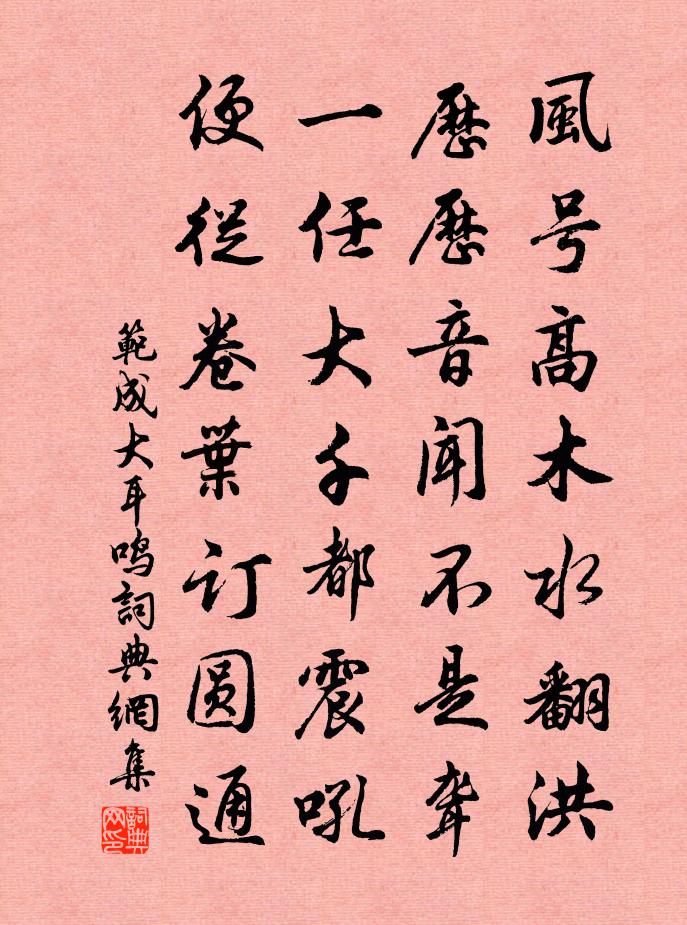 風号髙木水翻洪
歷歷音聞不是聋
一任大千都震吼
便從卷葉订圆通
範成大耳鳴詞典網集
詞典网印